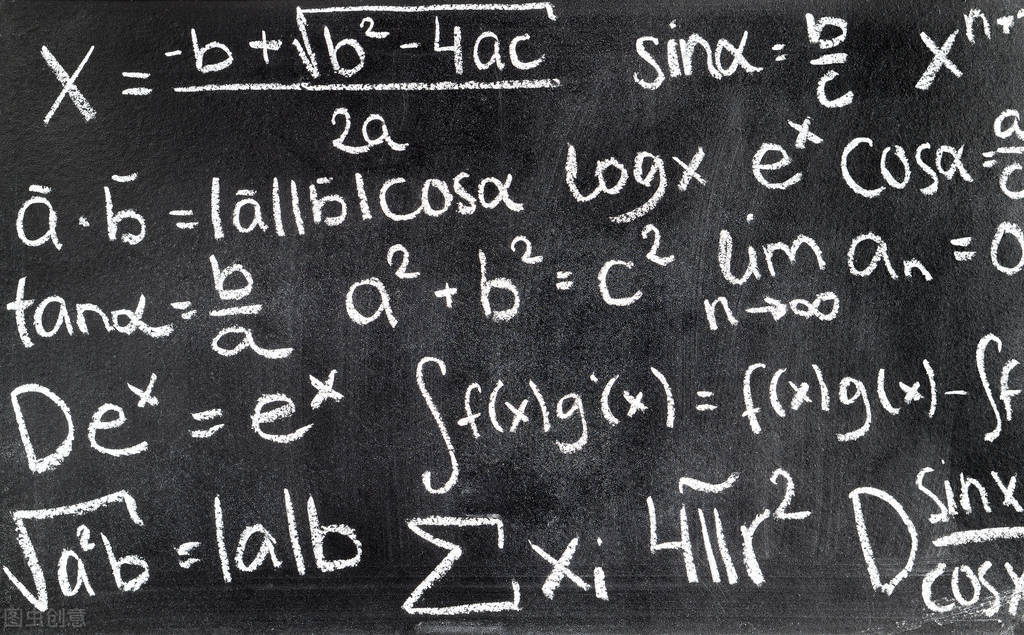 X = (-b + √(b² - 4ac)) / 2a   sinα = b/c   xⁿ⁺
ā · b̄ = |ā||b̄|cosα   logx   eˣ   cosα = a/c
tanα = b/a   a² + b² = c²   lim n→∞ aₙ = 0
Deˣ = eˣ   ∫f(x)g'(x) = f(x)g(x) - ∫f
√a²b = |a|b   ∑xᵢ   4πr²   D sinx/cosx
图虫创意